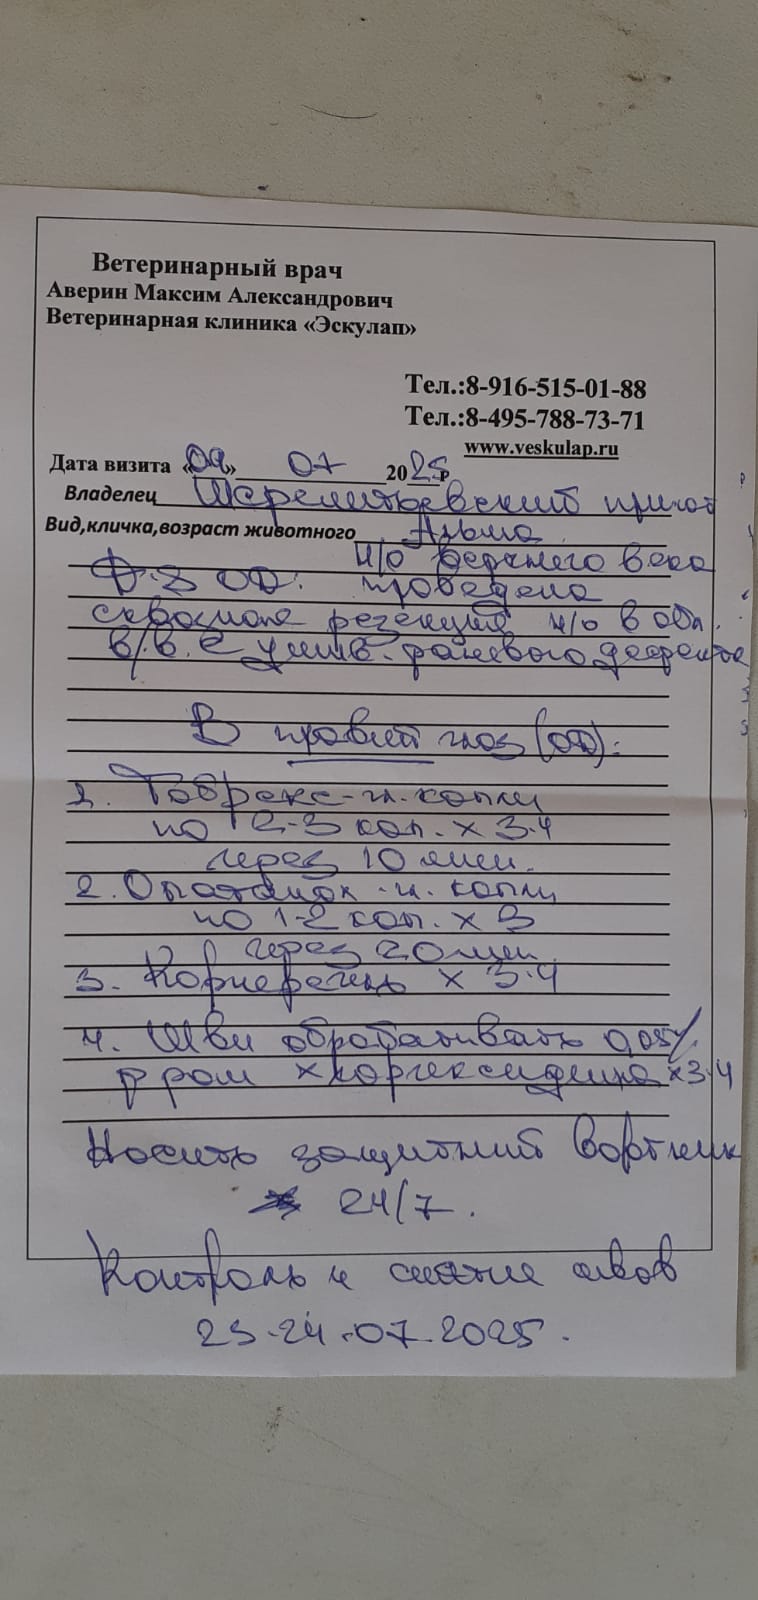 Ветеринарный врач
Аверин Максим Александрович
Ветеринарная клиника «Эскулап»
Тел.:8-916-515-01-88
Тел.:8-495-788-73-71
www.veskulap.ru
Дата визита «09» 07 2025г
Владелец Шереметьевский приют
Вид,кличка,возраст животного Альма
Н/о верхнего века
D-З OD: проведена
сквозная резекция н/о в обл.
в/в. с ушив. раневого дефекта
В правый глаз (OD):
1. Тобрекс-гл. капли
по 2-3 кап. х 3-4
через 10 мин.
2. Опатанол -гл. капли
по 1-2 кап. х 3
через 20 мин
3. Корнерегель х 3-4
4. Швы обрабатывать 0,05%
р-ром хлоргексидина х3-4
Носить защитный воротник
24/7.
Контроль и снятие швов
23-24.07.2025.